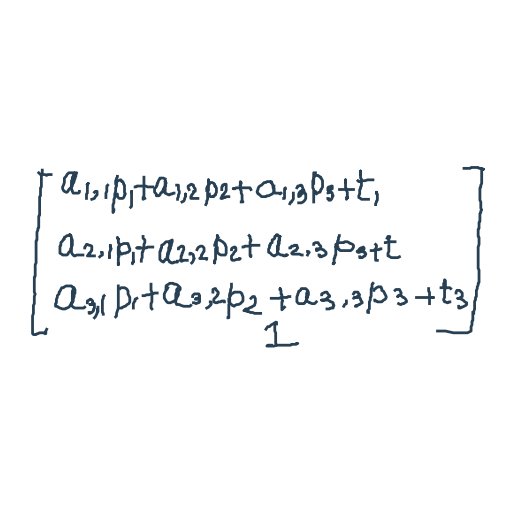 [a₁,₁p₁+a₁,₂p₂+a₁,₃p₃+t₁
a₂,₁p₁+a₂,₂p₂+a₂,₃p₃+t
a₃,₁p₁+a₃,₂p₂+a₃,₃p₃+t₃
1]